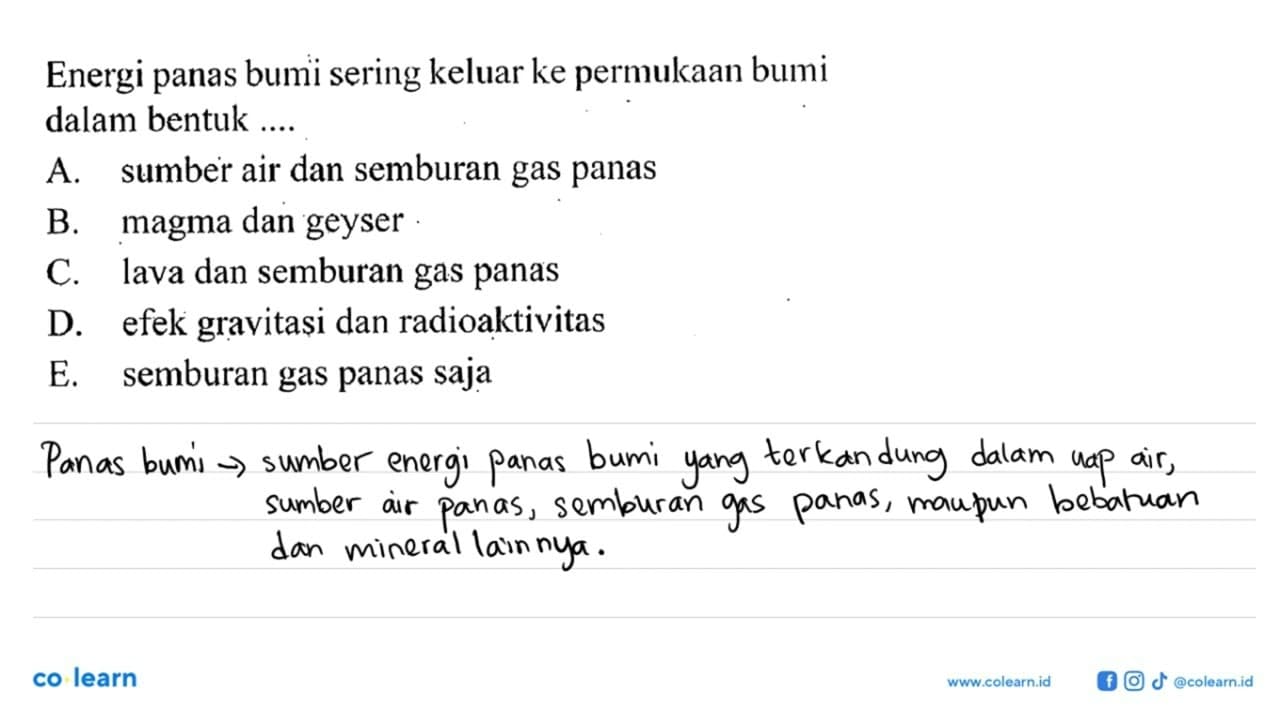 Energi panas bumi sering keluar ke permukaan bumi
dalam bentuk ....
A. sumber air dan semburan gas panas
B. magma dan geyser
C. lava dan semburan gas panas
D. efek gravitasi dan radioaktivitas
E. semburan gas panas saja
Panas bumi → sumber energi panas bumi yang terkandung dalam uap air,
sumber air panas, semburan gas panas, maupun bebatuan
dan mineral lainnya.
co learn
www.colearn.id @colearn.id